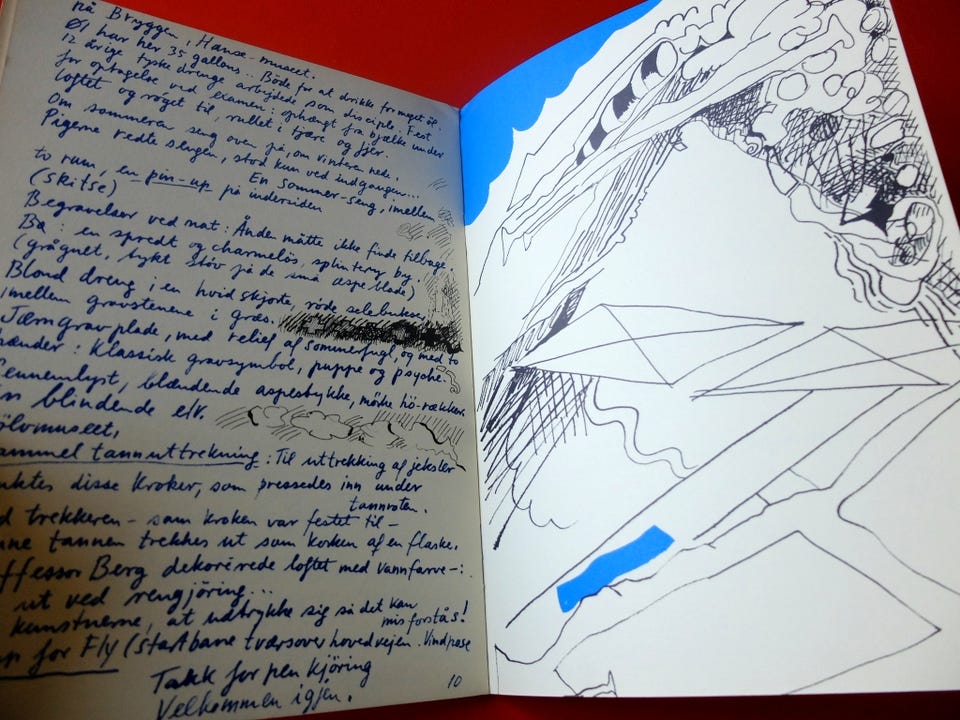 på Bryggen, Hansa-museet.
Øl har her 35 gallons... Både for at drikke for meget øl.
12 årige tyske drenge arbejdede som disciple. Fest
for optagelse ved examen: ophængt fra bjælke under
loftet og røget til, rullet i tjære og fjer.
Om sommeren seng oven på, om vinteren nede.
Pigerne redte sengen, stod kun ved indgangen...
En sommer-seng, imellem
to rum, en pin-up på indersiden
(skitse)
Begravelser ved nat: Ånden måtte ikke finde tilbage.
Bø: en spredt og charmeløs, splinterny by.
(grågnet, tykt støv på de små aspeblade)
Blond dreng i en hvid skjorte, røde selebukser,
imellem gravstenene i græs.
Jærngravplade, med relief af sommerfugl, og med to
hænder: Klassisk gravsymbol, puppe og psyche.
ennemlyst, blændende aspestykke, mørke hö-rækker.
n blindende elv.
ölvmuseet,
ammel tannuttrekning: Til uttrekking af jeksler
nktes disse kroker, som pressedes inn under
tannroten.
d trekkeren - som kroken var festet til -
nne tannen trekkes ut som korken af en flaske.
ffessor Berg dekorerede loftet med vannfarve-:
ut ved rengjöring...
kunstnerne, at udtrykke sig så det kan
misforstås!
p for Fly (startbane tværsover hovedvejen. Vindpose
Takk for pen kjöring
Velkommen igjen.
10